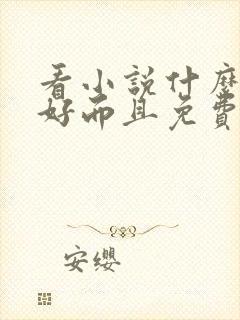 看小說什麼
好而且免費
安纓